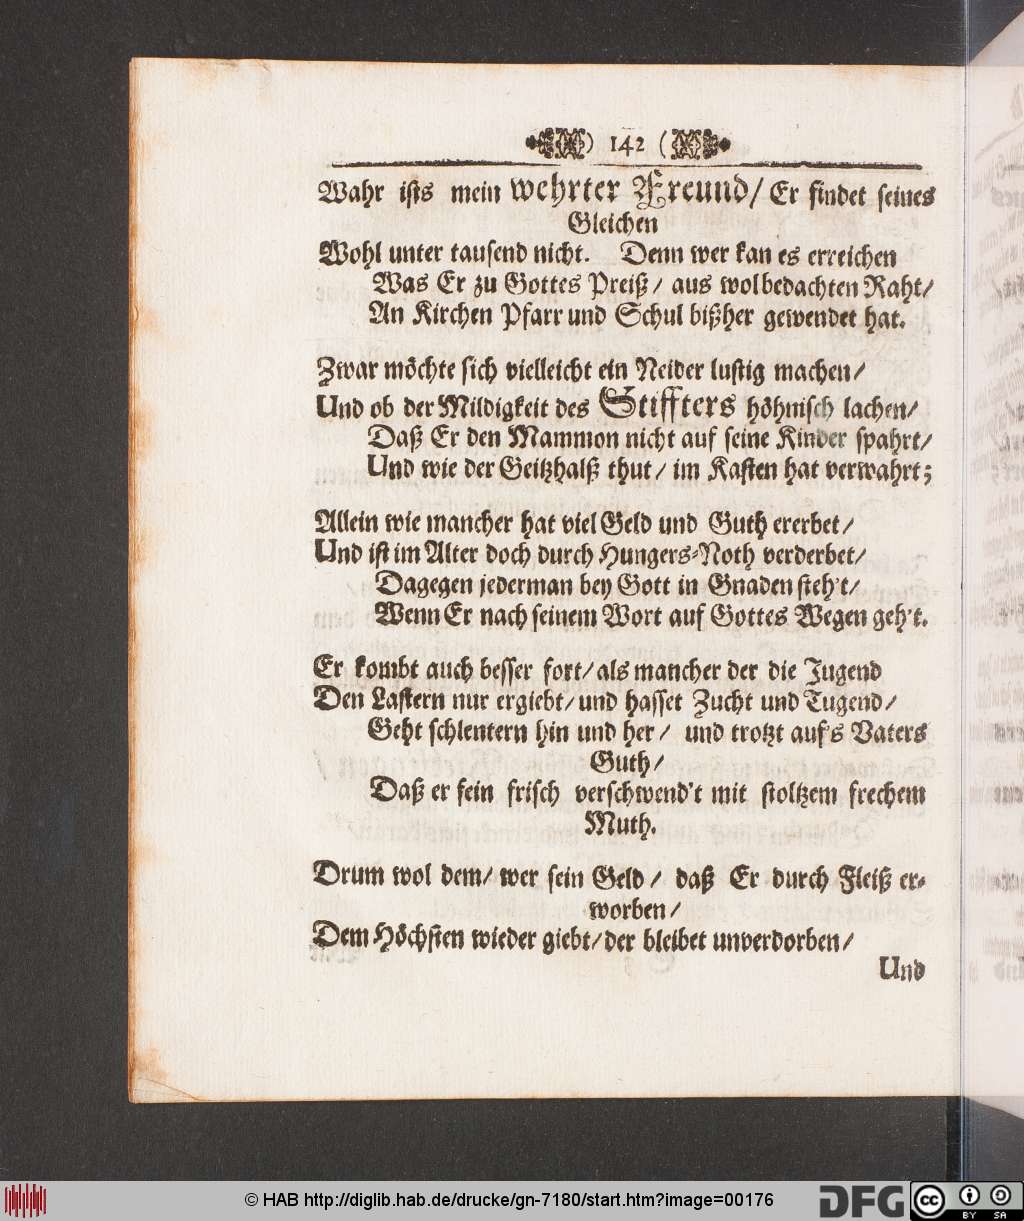 ) 142 (
Wahr ists mein wehrter Freund/ Er findet seines
Gleichen
Wohl unter tausend nicht. Denn wer kan es erreichen
Was Er zu Gottes Preiß/ aus wolbedachten Raht/
An Kirchen Pfarr und Schul bißher gewendet hat.
Zwar möchte sich vielleicht ein Neider lustig machen/
Und ob der Mildigkeit des Stiffters höhnisch lachen/
Daß Er den Mammon nicht auf seine Kinder spahrt/
Und wie der Geitzhalß thut/ im Kasten hat verwahrt;
Allein wie mancher hat viel Geld und Guth ererbet/
Und ist im Alter doch durch Hungers-Noth verderbet/
Dagegen jederman bey Gott in Gnaden steh't/
Wenn Er nach seinem Wort auf Gottes Wegen geh't.
Er kombt auch besser fort/ als mancher der die Jugend
Den Lastern nur ergiebt/ und hasset Zucht und Tugend/
Geht schlentern hin und her/ und trotzt auf's Vaters
Guth/
Daß er fein frisch verschwend't mit stoltzem frechem
Muth.
Drum wol dem/ wer sein Geld/ daß Er durch Fleiß er-
worben/
Dem Höchsten wieder giebt/ der bleibet unverdorben/
Und
© HAB http://diglib.hab.de/drucke/gn-7180/start.htm?image=00176
DFG
cc BY SA